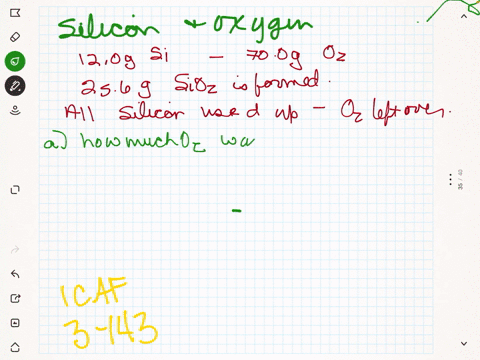 Silicon + oxygen
12.0g Si — 70.0g O₂
25.6 g SiO₂ is formed.
All silicon used up - O₂ leftover.
a) how much O₂ wa
-
1CAF
3-143
35 / 41